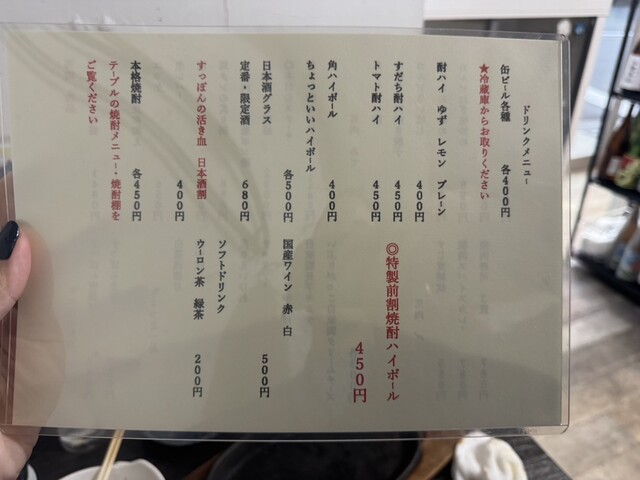 ドリンクメニュー
缶ビール各種 各400円
★冷蔵庫からお取りください
酎ハイ ゆず レモン プレーン
400円
すだち酎ハイ 450円
トマト酎ハイ 450円
角ハイボール 400円
ちょっといいハイボール
各500円
日本酒グラス
定番・限定酒 680円
すっぽんの活き血 日本酒割
400円
本格焼酎 各450円
テーブルの焼酎メニュー・焼酎棚を
ご覧ください
◎特製前割焼酎ハイボール
450円
国産ワイン 赤 白
500円
ソフトドリンク
ウーロン茶 緑茶 200円